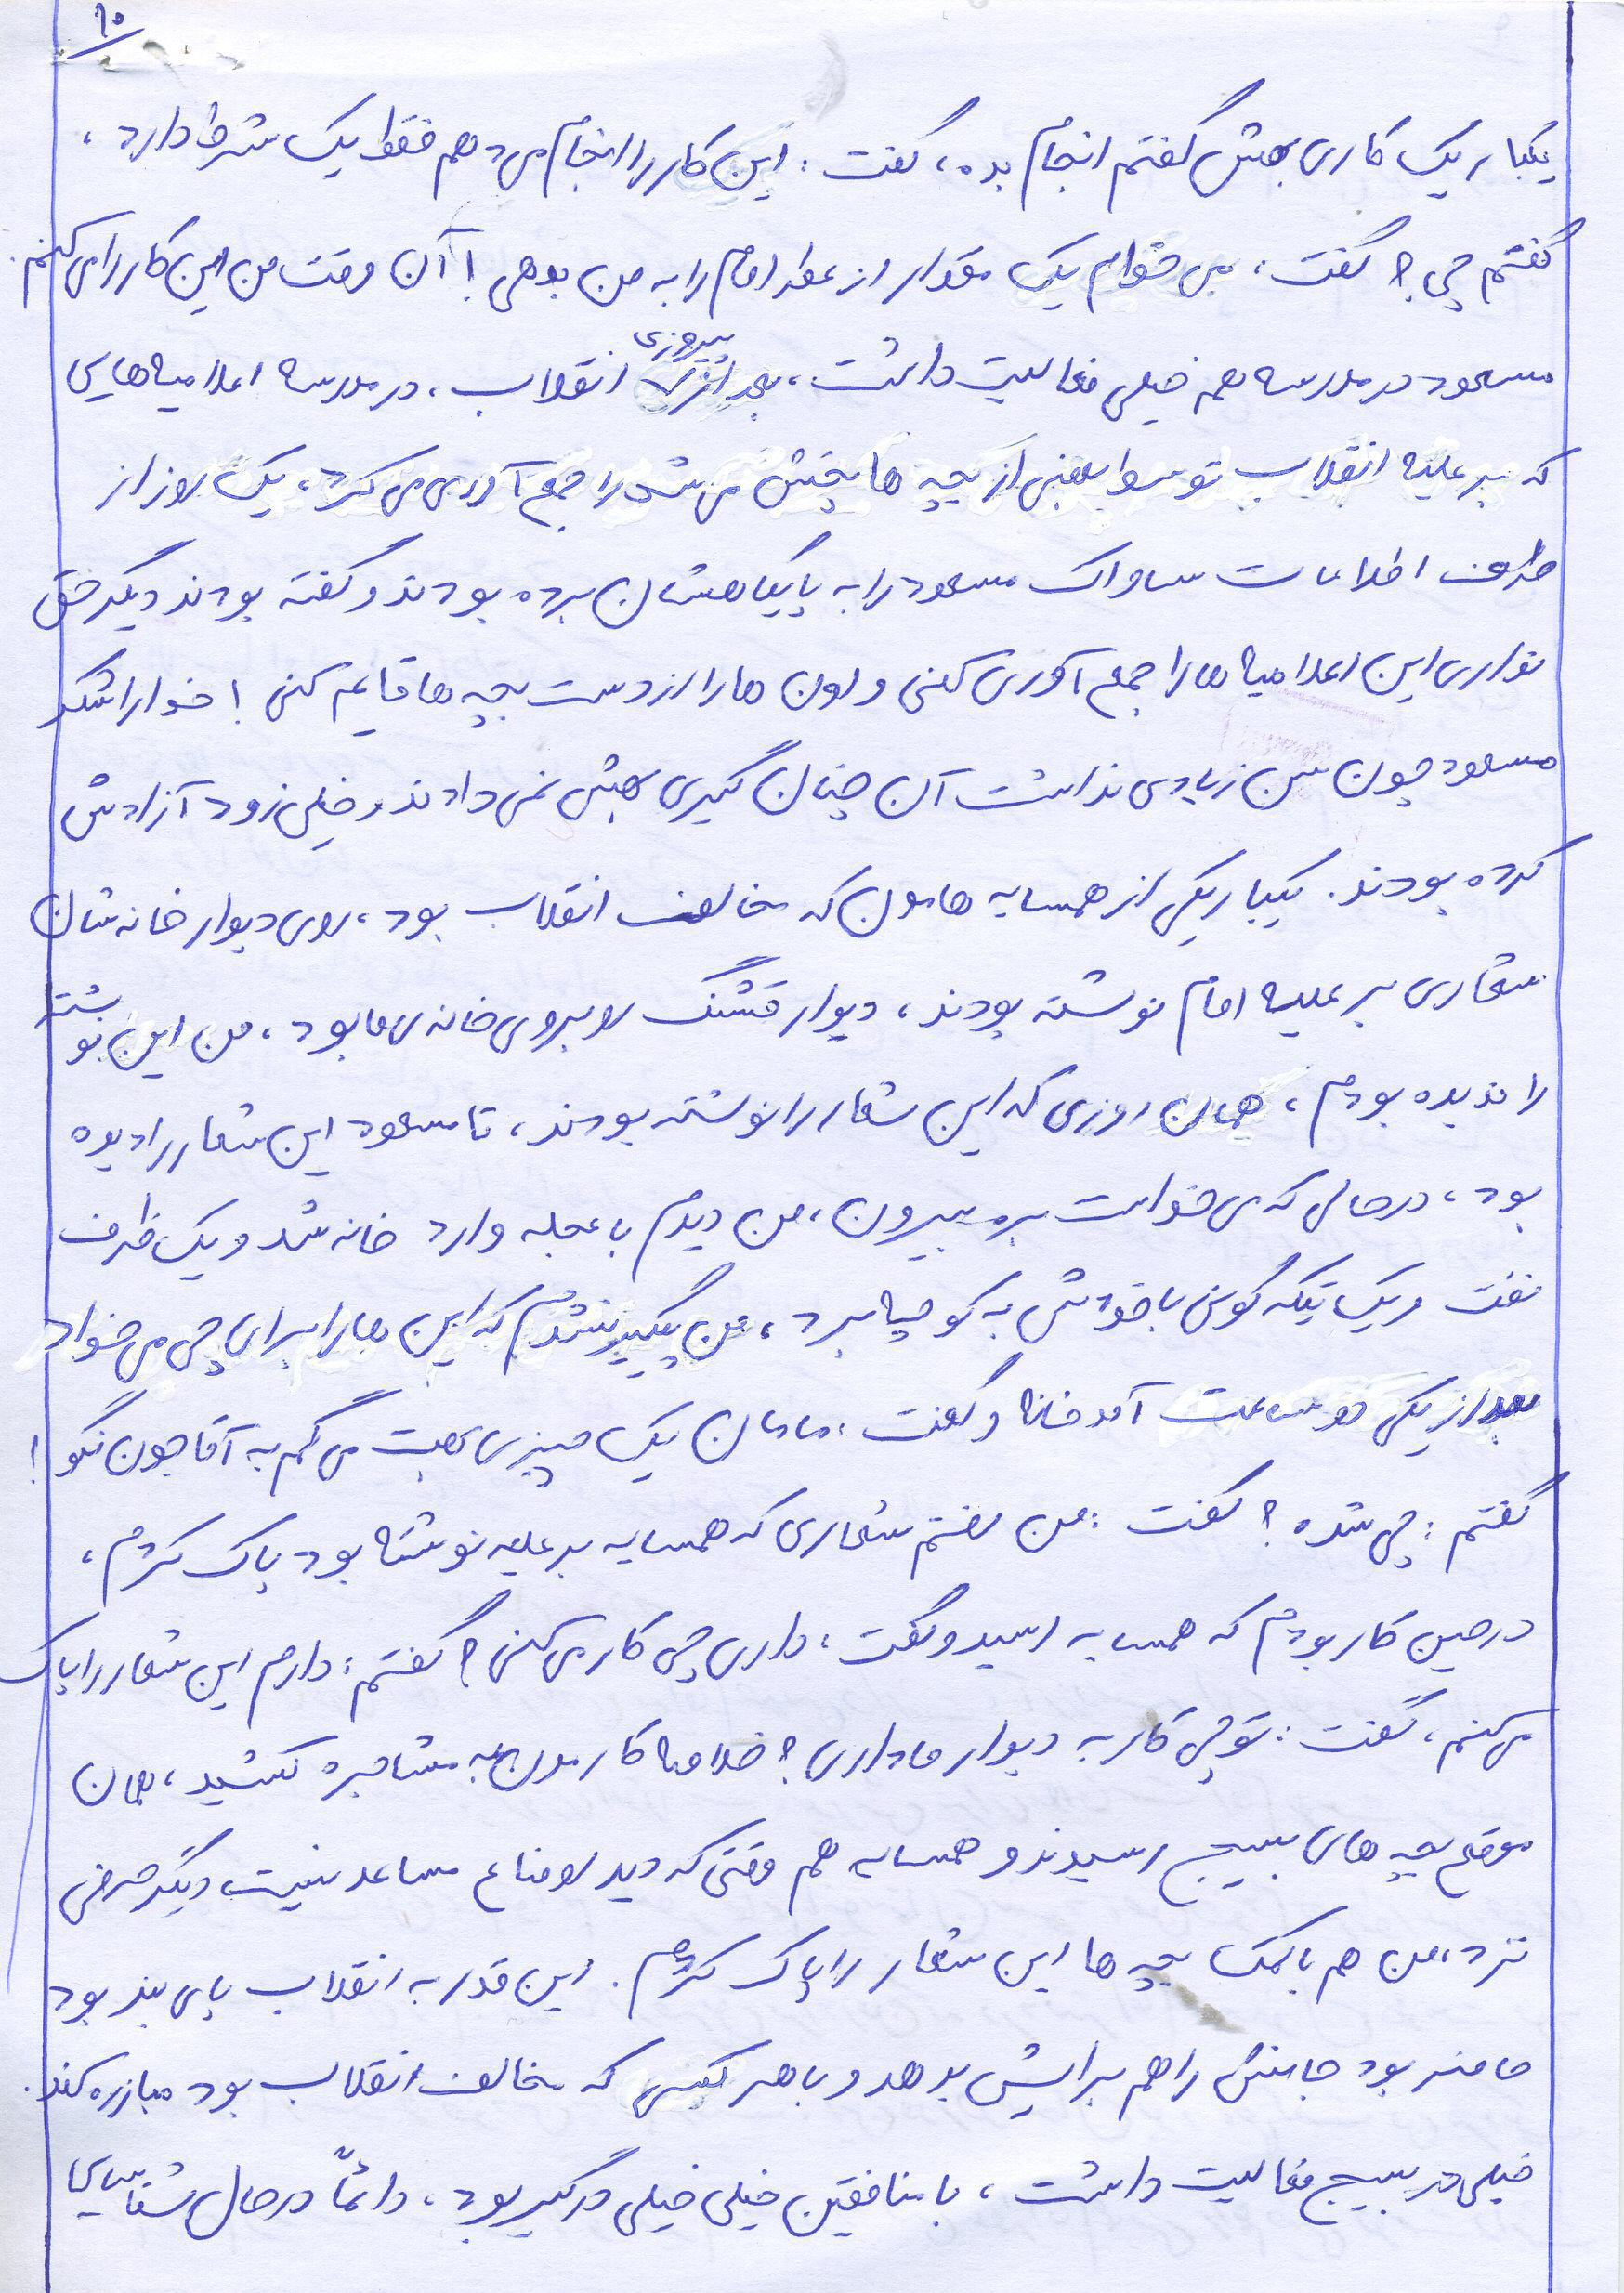 ۱۰
یکبار یک کاری بهش گفتم انجام بده، گفت: این کار را انجام می دهم فقط یک شرط دارد،
گفتم چی؟ گفت، می خوام یک مقدار از عطر امام را به من بدهی! آن وقت من این کار را می کنم.
مسعود در مدرسه هم خیلی فعالیت داشت، بعد از پیروزی انقلاب، در مدرسه اعلامیه هایی
که بر علیه انقلاب توسط بعضی از بچه ها پخش می شد را جمع آوری می کرد، یک روز از
طرف اطلاعات ساواک مسعود را به پایگاهشان برده بودند و گفته بودند دیگر حق
نداری این اعلامیه ها را جمع آوری کنی و اون ها را از دست بچه ها قایم کنی! خدا را شکر
مسعود چون سن زیادی نداشت آن چنان گیری بهش نمی دادند و خیلی زود آزادش
کرده بودند. یکبار یکی از همسایه هامون که مخالف انقلاب بود، روی دیوار خانه شان
شعاری بر علیه امام نوشته بودند، دیوار قشنگ روبروی خانه ی ما بود، من این نوشته
را ندیده بودم، همان روزی که این شعار را نوشته بودند، تا مسعود این شعار را دیده
بود، در حالی که می خواست بره بیرون، من دیدم با عجله وارد خانه شد و یک ظرف
نفت و یک تیکه گونی با خودش به کوچه برد، من پیگیر نشدم که این ها را برای چی می خواد
بعد از یکی دو ساعت آمد خانه و گفت، مامان یک چیزی بهت می گم به آقاجون نگو!
گفتم: چی شده؟ گفت: من رفتم شعاری که همسایه بر علیه نوشته بود پاک کردم،
در حین کار بودم که همسایه رسید و گفت، داری چی کار می کنی؟ گفتم: دارم این شعار را پاک
می کنم، گفت: تو چی کار به دیوار ما داری؟ خلاصه کارمون به مشاجره کشید، همان
موقع بچه های بسیج رسیدند و همسایه هم وقتی که دید اوضاع مساعد نیست، دیگر حرفی
نزد، من هم با کمک بچه ها این شعار را پاک کردم. این قدر به انقلاب پای بند بود
حاضر بود جانش را هم برایش بدهد و با هر کسی که مخالف انقلاب بود مبارزه کند.
خیلی در بسیج فعالیت داشت، با منافقین خیلی خیلی درگیر بود، دائماً در حال شناسایی